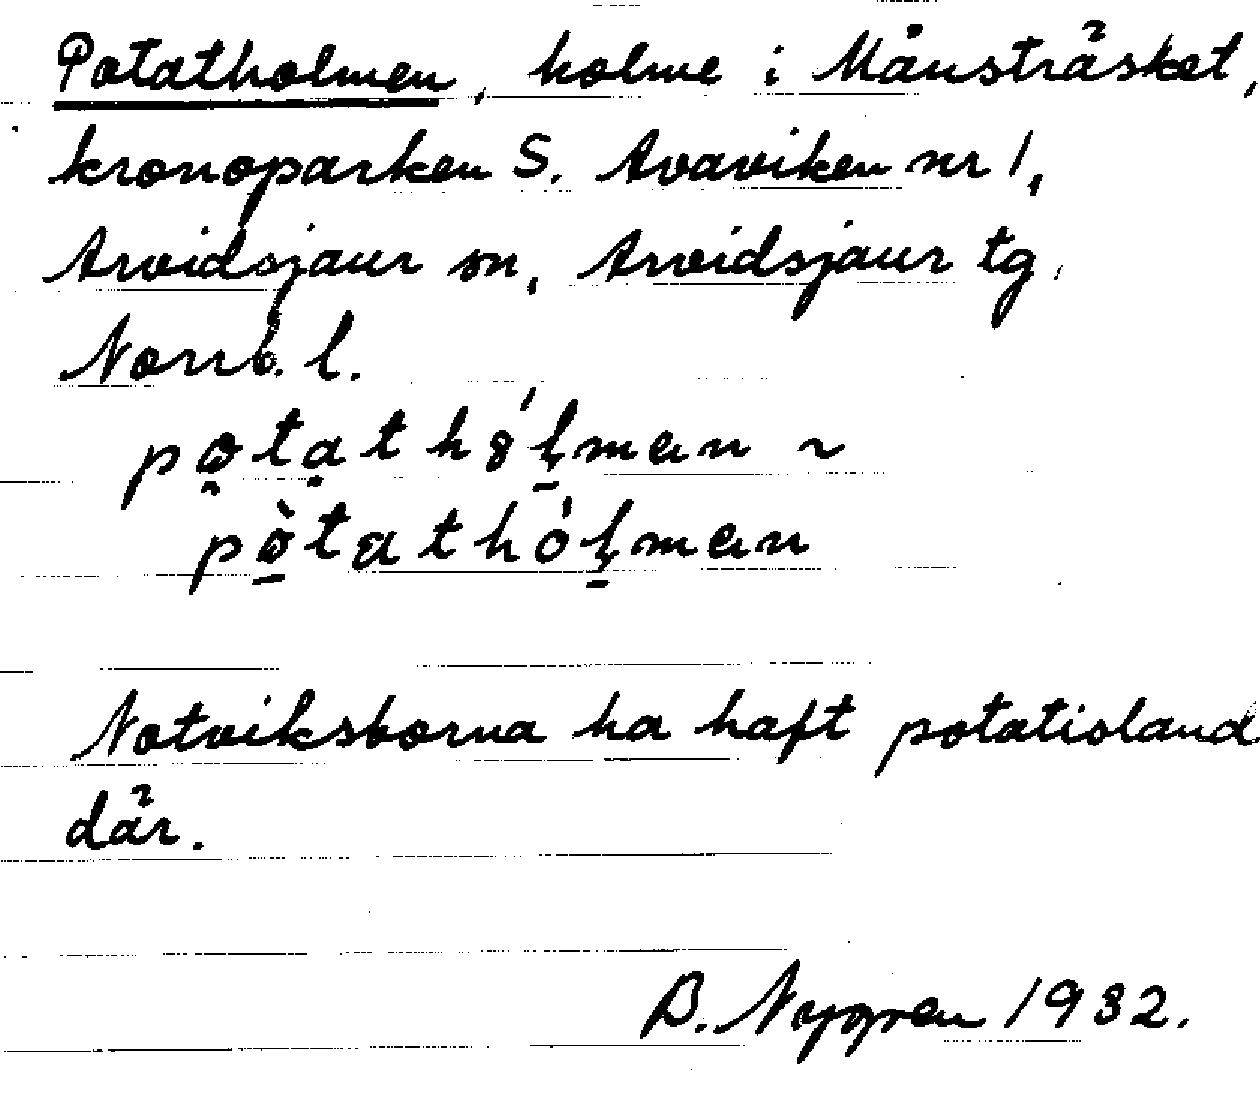 Potatholmen, holme i Månsträsket,
kronoparken S. Avaviken nr 1,
Arvidsjaur sn, Arvidsjaur tg,
Norrb. l.
po̱tạthó̱ḷman ~
pò̱tathóḻman
Notviksborna ha haft potatisland
där.
B. Nygren 1932.